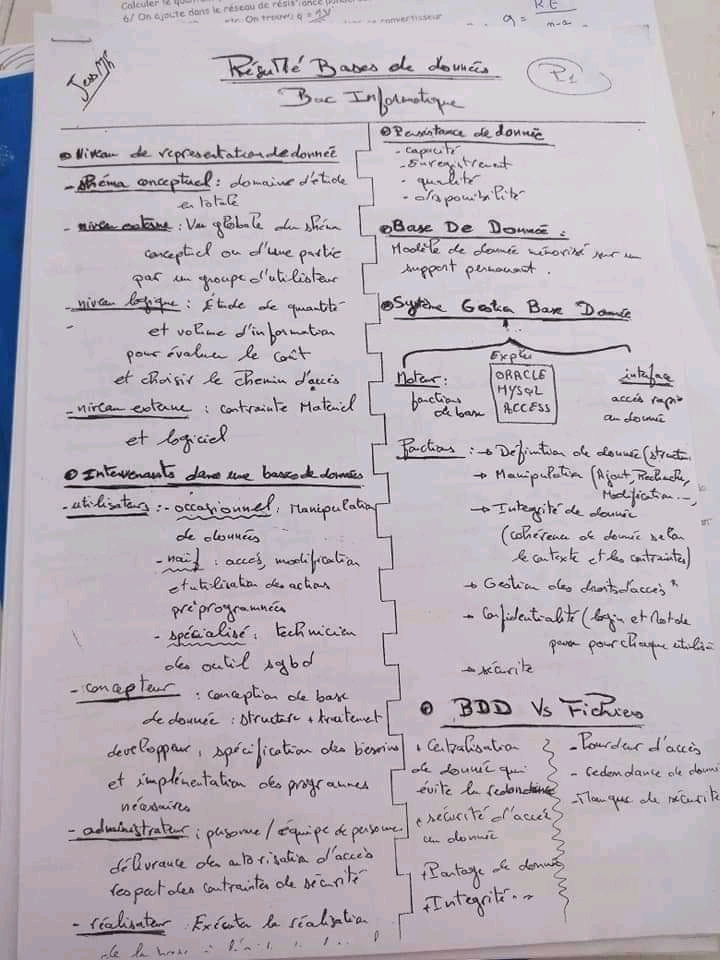 6/ On ajoute dans le réseau de résistance
On trouve q =
convertisseur
q = RE
n-a
Résumé Bases de données
P1
Bac Informatique
● Niveau de représentation de donnée
- shéma conceptuel : domaine d'étude
en totale
- niveau externe : Vue globale du shéma
conceptuel ou d'une partie
par un groupe d'utilisteur
- niveau logique : Étude de quantité
et volume d'information
pour évaluer le coût
et choisir le chemin d'accès
- niveau externe : contrainte Materiel
et logiciel
● Intervenants dans une base de données
- utilisateurs : - occasionnel : Manipulation
de données
- naïf : accés, modification
et utilisation des actions
préprogrammées
- spécialisé : technicien
des outil sgbd
- concepteur : conception de base
de donnée : structure + traitement
developpeur : spécification des besoins
et implémentation des programmes
nécessaires
- administrateur : personne / équipe de personne
délivrance des autorisation d'accès
respect des contraintes de sécurité
- réalisateur : Exécuter la réalisation
de la base
● Persistance de donnée
- capacité
- Enregistrement
- qualité
- disponibilité
● Base De Donnée :
Modèle de donnée mémorisé sur un
support permanant .
● Système Gestion Base Donnée
Exples
Moteur :
fonctions
de base
ORACLE
MYSQL
ACCESS
interface
accès rapide
au donnée
Fonctions : → Définition de donnée (structu
→ Manipulation (Ajout, Recherche,
Modification ...
→ Integrité de donnée
(cohérence de donnée selon
le contexte et les contraintes)
→ Gestion des droits d'accès
→ Confidentialité (login et Mot de
passe pour chaque utilis
→ sécurité
● BDD Vs Fichiers
+ Centralisation
de donnée qui
évite la redondance
+ sécurité d'accès
au donnée
+ Partage de donnée
+ Integrité ...
- Lourdeur d'accès
- redondance de donn
- Manque de sécurité